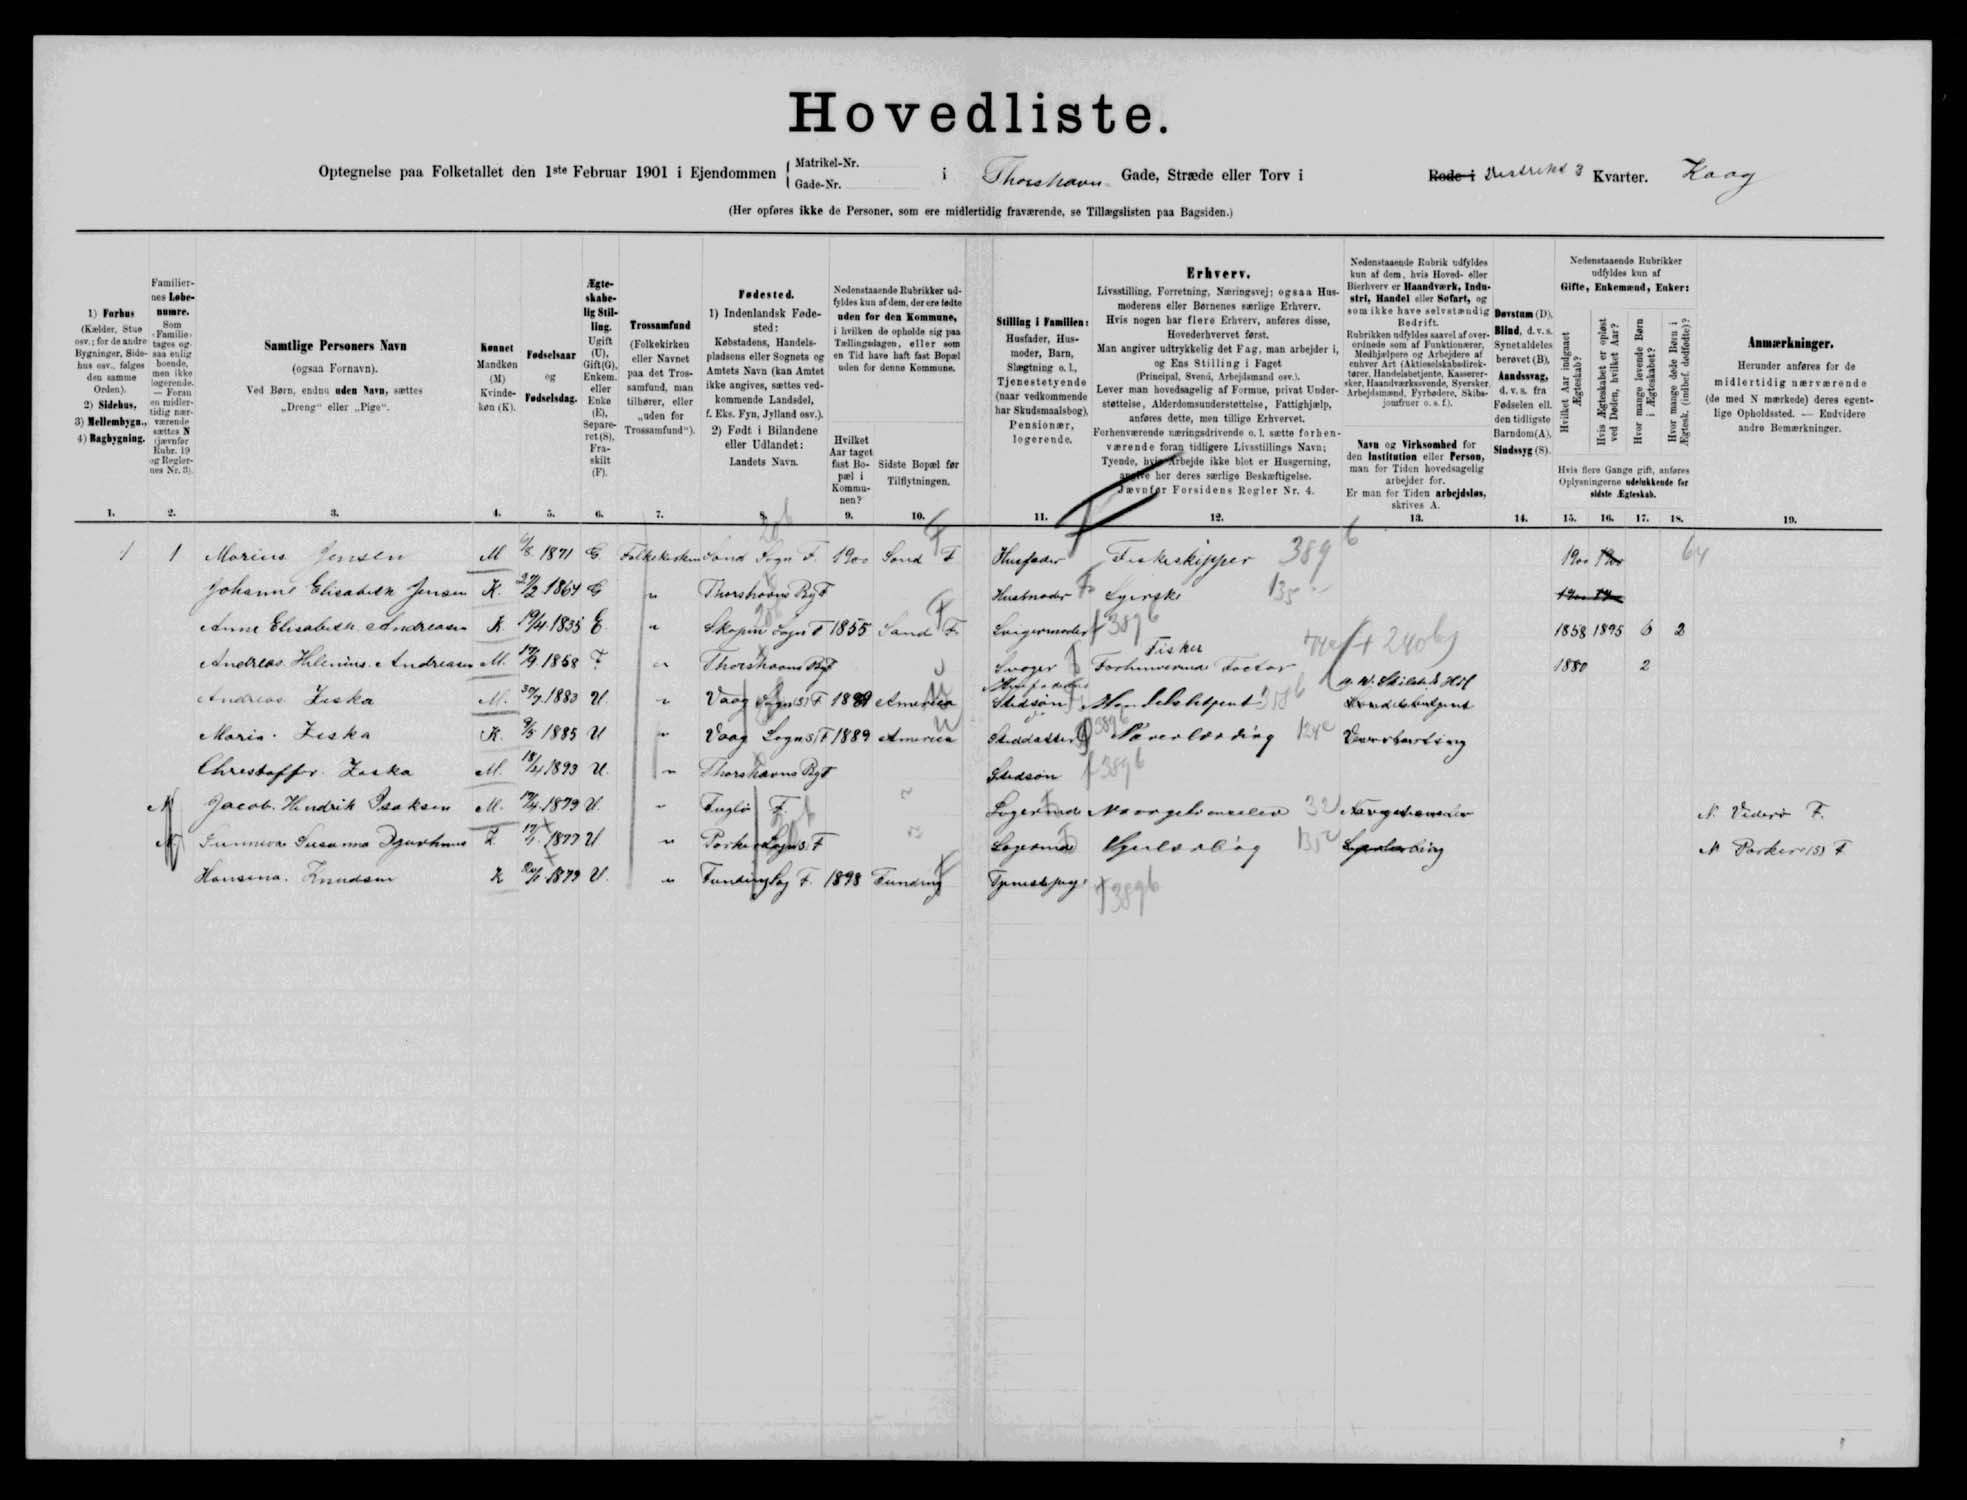 Hovedliste.
Optegnelse paa Folketallet den 1ste Februar 1901 i Ejendommen { Matrikel-Nr. Gade-Nr. i Thorshavn Gade, Stræde eller Torv i Rode i Distrikt 3 Kvarter. Kaag
(Her opføres ikke de Personer, som ere midlertidig fraværende, se Tillægslisten paa Bagsiden.)
1) Forhus
(Kælder, Stue
osv.; for de andre
Bygninger, Side-
hus osv., følges
den samme
Orden).
2) Sidehus,
3) Mellembygn.,
4) Bagbygning.
Familier-
nes Løbe-
numre.
Som
Familie
tages og-
saa enlig
boende,
men ikke
logerende.
— Foran
en midler-
tidig nær-
værende
sættes N
(jævnfør
Rubr. 19
og Regler-
nes Nr. 3).
Samtlige Personers Navn
(ogsaa Fornavn).
Ved Børn, endnu uden Navn, sættes
„Dreng“ eller „Pige“.
Kønnet
Mandkøn
(M)
Kvinde-
køn (K).
Fødselsaar
og
Fødselsdag.
Ægte-
skabe-
lig Stil-
ling.
Ugift
(U),
Gift(G),
Enkem.
eller
Enke
(E),
Separe-
ret(S),
Fra-
skilt
(F).
Trossamfund
(Folkekirken
eller Navnet
paa det Tros-
samfund, man
tilhører, eller
„uden for
Trossamfund“).
Fødested.
1) Indenlandsk Føde-
sted:
Købstadens, Handels-
pladsens eller Sognets og
Amtets Navn (kan Amtet
ikke angives, sættes ved-
kommende Landsdel,
f. Eks. Fyn, Jylland osv.).
2) Født i Bilandene
eller Udlandet:
Landets Navn.
Nedenstaaende Rubrikker ud-
fyldes kun af dem, der ere fødte
uden for den Kommune,
i hvilken de opholde sig paa
Tællingsdagen, eller som
en Tid have haft fast Bopæl
uden for denne Kommune.
Hvilket
Aar taget
fast Bo-
pæl i
Kommu-
nen?
Sidste Bopæl før
Tilflytningen.
Stilling i Familien:
Husfader, Hus-
moder, Barn,
Slægtning o. l.,
Tjenestetyende
(naar vedkommende
har Skudsmaalsbog),
Pensionær,
logerende.
Erhverv.
Livsstilling, Forretning, Næringsvej; ogsaa Hus-
moderens eller Børnenes særlige Erhverv.
Hvis nogen har flere Erhverv, anføres disse,
Hovederhvervet først.
Man angiver udtrykkelig det Fag, man arbejder i,
og Ens Stilling i Faget
(Principal, Svend, Arbejdsmand osv.).
Lever man hovedsagelig af Formue, privat Under-
støttelse, Alderdomsunderstøttelse, Fattighjælp,
anføres dette, men tillige Erhvervet.
Forhenværende næringsdrivende o. l. sætte forhen-
værende foran tidligere Livsstillings Navn;
Tyende, hvis Arbejde ikke blot er Husgerning,
angive her deres særlige Beskæftigelse.
Jævnfør Forsidens Regler Nr. 4.
Nedenstaaende Rubrik udfyldes
kun af dem, hvis Hoved- eller
Bierhverv er Haandværk, Indu-
stri, Handel eller Søfart, og
som ikke have selvstændig
Bedrift.
Rubrikken udfyldes saavel af over-
ordnede som af Funktionærer,
Medhjælpere og Arbejdere af
enhver Art (Aktieselskabsdirek-
tører, Handelsbetjente, Kasserer-
sker, Haandværkssvende, Syersker,
Arbejdsmænd, Fyrbødere, Skibs-
jomfruer o. s. f.).
Navn og Virksomhed for
den Institution eller Person,
man for Tiden hovedsagelig
arbejder for.
Er man for Tiden arbejdsløs,
skrives A.
Døvstum (D),
Blind, d. v. s.
Synet aldeles
berøvet (B),
Aandssvag,
d. v. s. fra
Fødselen ell.
den tidligste
Barndom(A),
Sindssyg (S).
Nedenstaaende Rubrikker
udfyldes kun af
Gifte, Enkemænd, Enker:
Hvilket Aar indgaaet
Ægteskab?
Hvis Ægteskabet er opløst
ved Døden, hvilket Aar?
Hvor mange levende Børn
i Ægteskabet?
Hvor mange døde Børn i
Ægtesk. (indbef. dødfødte)?
Hvis flere Gange gift, anføres
Oplysningerne udelukkende for
sidste Ægteskab.
Anmærkninger.
Herunder anføres for de
midlertidig nærværende
(de med N mærkede) deres egent-
lige Opholdssted. — Endvidere
andre Bemærkninger.
1. 2. 3. 4. 5. 6. 7. 8. 9. 10. 11. 12. 13. 14. 15. 16. 17. 18. 19.
1 1 Marius Jensen M. 6/8 1871 G Folkekirken Sand Sogn F. 1900 Sand F Husfader Fiskeskipper 389 b 1900 1900 64
Johanne Elisabeth Jensen K. 1864 G " Thorshavns Byt Husmoder Syerske 135 1900
Anne Elisabeth Andreasen K. 19/4 1835 E. " Skopun Sogn F 1855 Sand F. Svigermoder 389 b 1858 1895 6 2
Andreas Helenius Andreasen M. 1858 F. " Thorshavns Byt Svoger Fisker Forhenværende Factor 1880 2
Andreas Ziska M. 30/7 1883 U. " Vaag Sogn (S) F 1889 America Stedsøn Handelsbetjent 358 b
Maria Ziska K. 9/5 1885 U " Vaag Sogn S) F 1889 America Steddatter 389 b
Christoffer Ziska M. 18/4 1893 U. " Thorshavns Byt Stedsøn 389 b
N Jacob Hendrik Isaksen M. 1879 U. " Fuglø F. Logerende N. Viderø F.
N Sunneva Susanna Djurhuus K 1877 U " Porkere Sogn S) F Logerende N Porkere (S) F
Hansina Knudsen K 1879 U. " Funding Sog F. 1898 Funding Tjenestepige 389 b